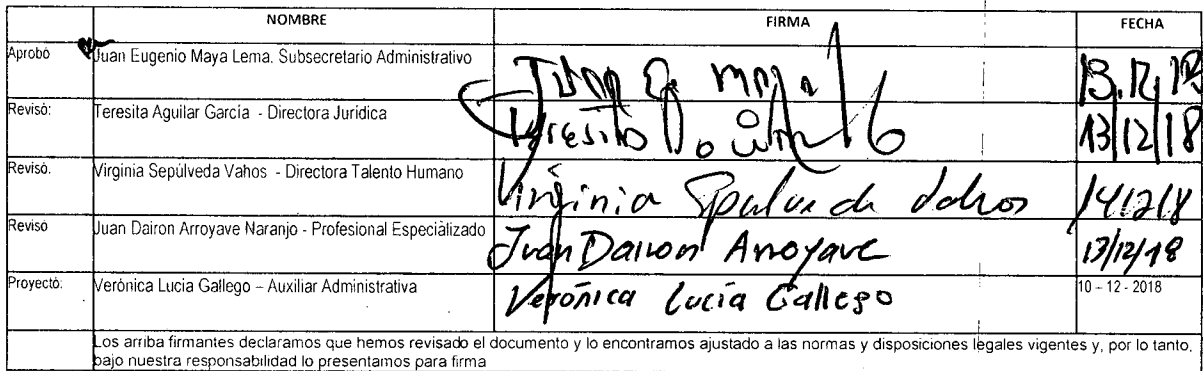 NOMBRE FIRMA FECHA
Aprobó Juan Eugenio Maya Lema. Subsecretario Administrativo Juan E. 13.12.18
Revisó: Teresita Aguilar García - Directora Jurídica Teresita 13/12/18
Revisó. Virginia Sepúlveda Vahos - Directora Talento Humano Virginia 14/12/18
Revisó Juan Dairon Arroyave Naranjo - Profesional Especializado Juan Dairon Arroyave 13/12/18
Proyectó: Verónica Lucia Gallego – Auxiliar Administrativa Verónica Lucía Gallego 10 – 12 - 2018
Los arriba firmantes declaramos que hemos revisado el documento y lo encontramos ajustado a las normas y disposiciones legales vigentes y, por lo tanto,
bajo nuestra responsabilidad lo presentamos para firma